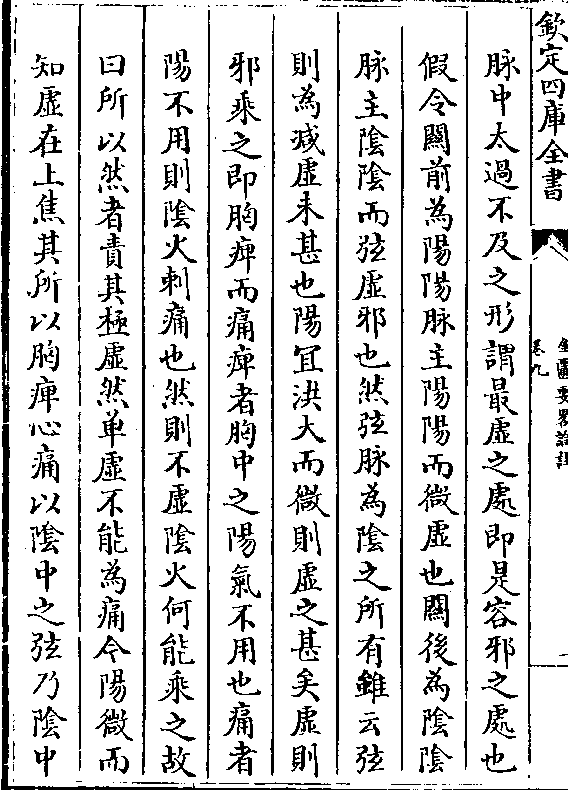 欽定四庫全書
金匱要畧論註
卷九
脉中太過不及之形謂最虛之處即是容邪之處也
假令關前為陽陽脉主陽陽而微虛也關後為陰陰
脉主陰陰而弦虛邪也然弦脉為陰之所有雖云弦
則為減虛未甚也陽宜洪大而微則虛之甚矣虛則
邪乘之即胸痺而痛痺者胸中之陽氣不用也痛者
陽不用則陰火刺痛也然則不虛陰火何能乘之故
曰所以然者責其極虛然单虛不能為痛今陽微而
知虛在上焦其所以胸痺心痛以陰中之弦乃陰中